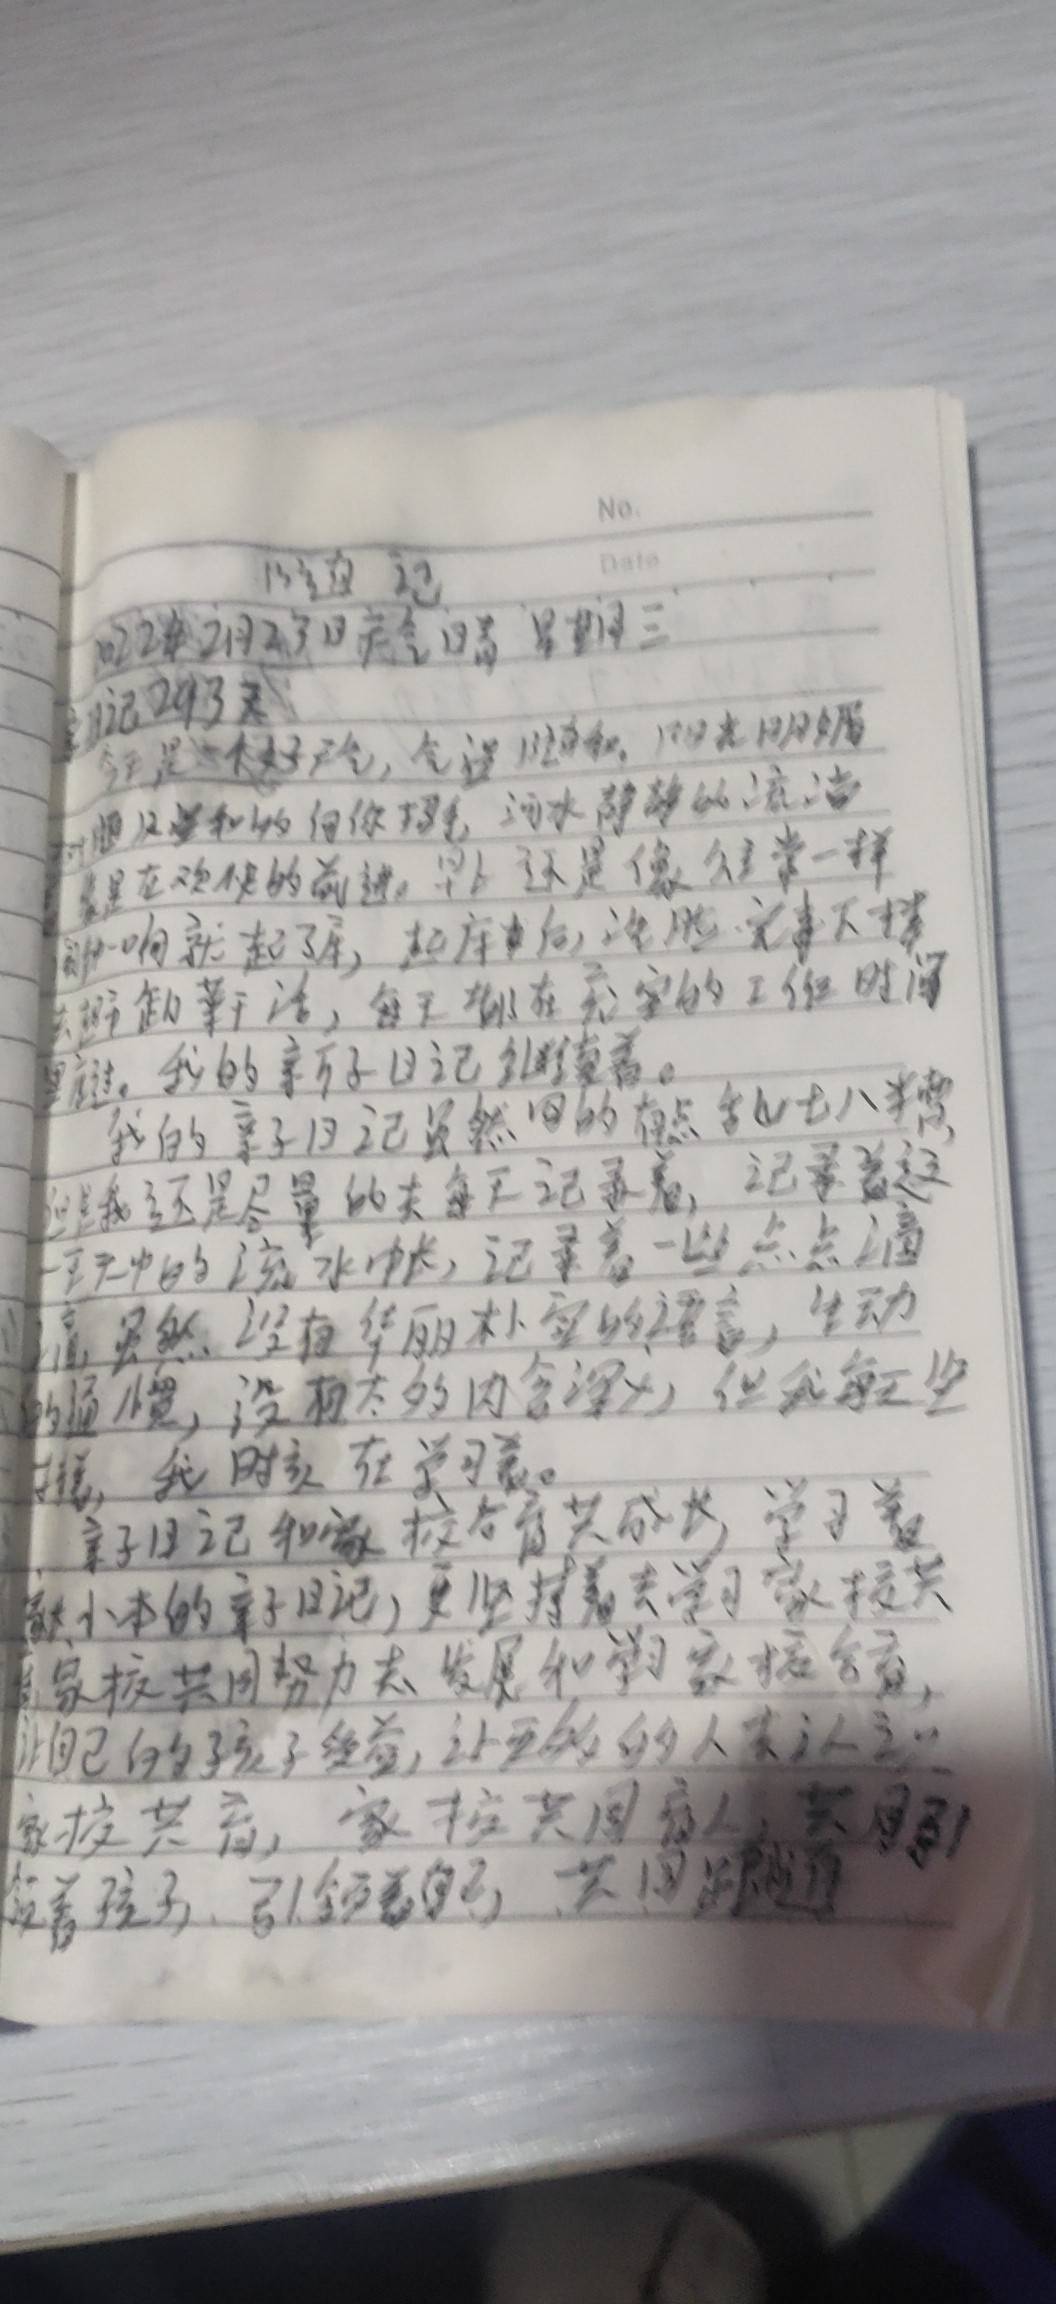 No.
Date
随记
2022年2月23日 天气 晴 星期三
日记293天
今天是一个好天气,气温随和,阳光明媚
温和的向你招手,河水静静的流淌
在欢快的前进。早上还是像往常一样
闹钟一响就起了床,起床后,洗脸完事下楼
去卸车干活,每天都在充实的工作时间
里度过。我的亲子日记继续着。
我的亲子日记虽然写的有点乱七八糟,
但是我还是尽量的去每天记录着,记录着这
一天天中的流水帐,记录着一些点点滴
滴,虽然没有华丽朴实的语言,生动
的语,没有太多的内含深义,但我每天坚
持,我时刻在学习着。
亲子日记和家校合育共成长,学习着
小本的亲子日记,更坚持着去学习家校共
育,家校共同努力去发展和学习家校合育,
让自己的孩子受益,让更多的人去认识
家校共育,家校共同育人,共同引
领着孩子,引领着自己,共同